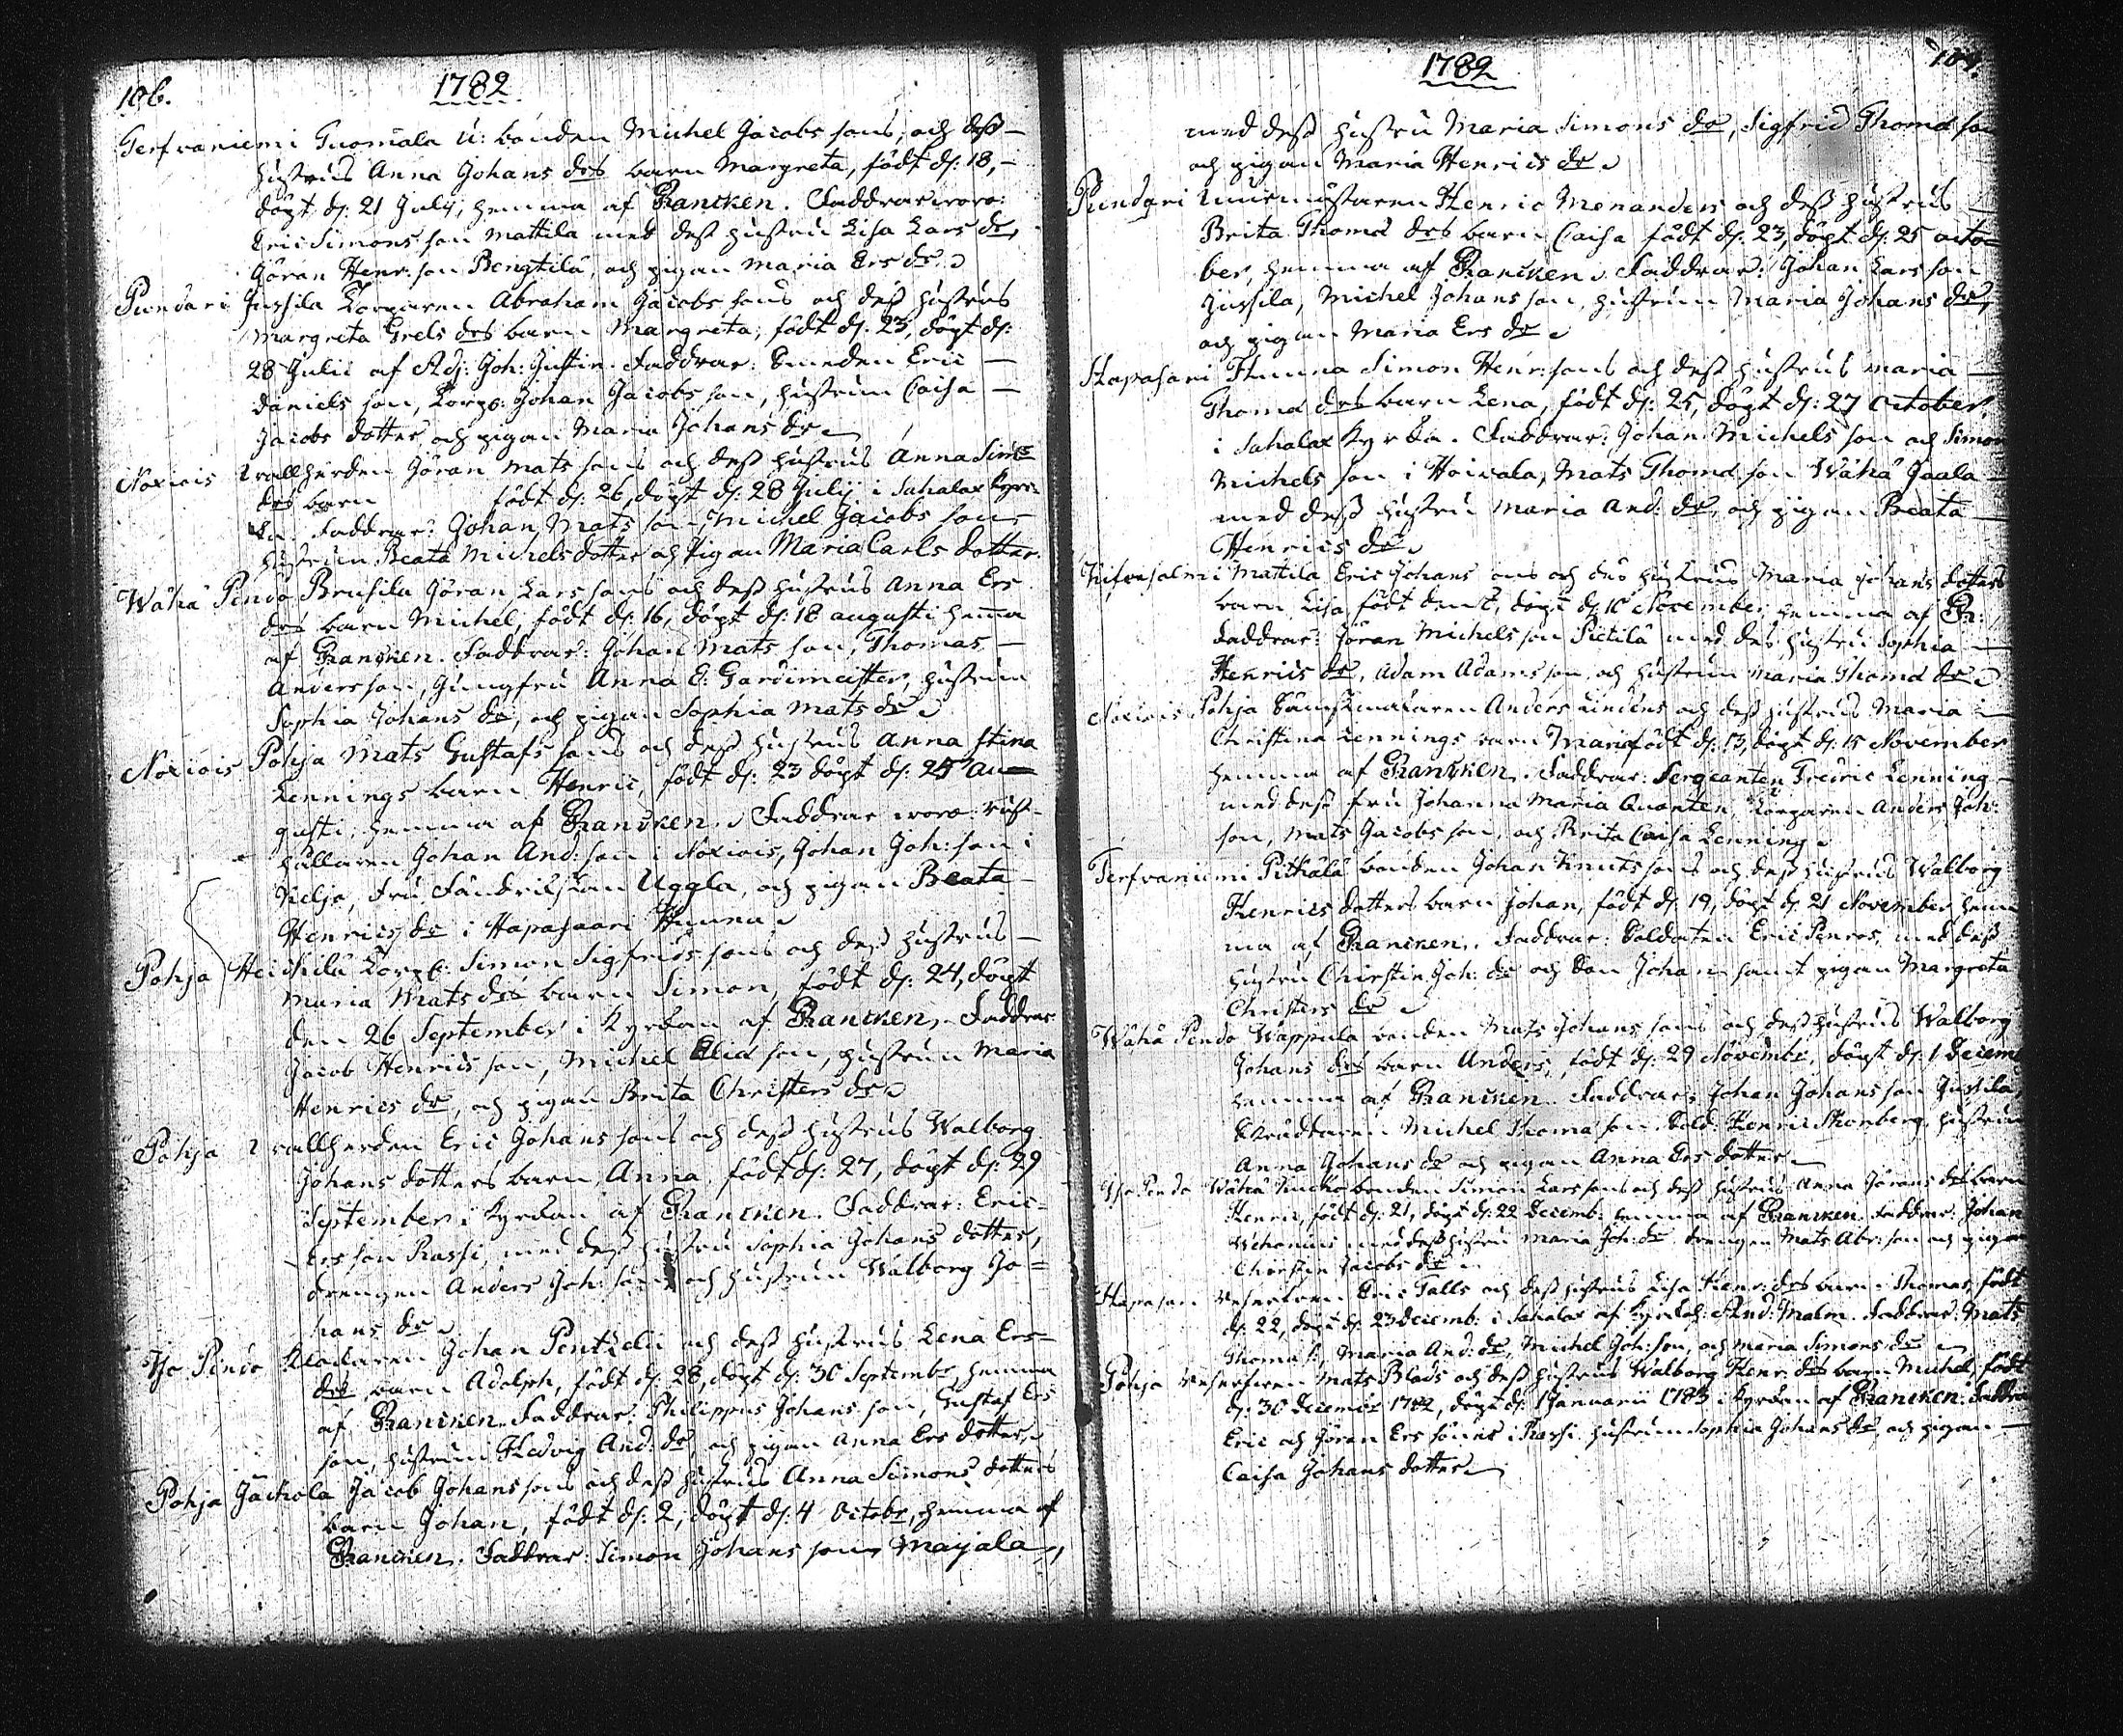 106.
1782
Terfvaniemi Tuomala u: bonden Michel Jacobs sons, och dess
hustrus Anna Johans drs barn Margreta, födt d: 18,
döpt d: 21 July, hemma af Rancken. Faddrar woro:
Eric Simons son Mattila med dess hustru Lisa Lars dr,
Göran Henr: son Bengtilä, och pigan Maria Ers dr
Pundari Jussila Torparen Abraham Jacobs sons och dess hustrus
Margreta Grels drs barn Margreta, födt d: 23, döpt d:
28 Julii af Adj: Joh: Justin. Faddrar: Smeden Eric
Daniels son, Torp: Johan Jacobs son, hustrun Caisa
Jacobs dotter, och pigan Maria Johans dr
Noxiois vallherden Göran Mats sons och dess hustrus Anna Sims
drs barn födt d: 26, döpt d: 28 Julij i Sahalax kyrc-
ka Faddrar: Johan Mats son Michel Jacobs son
hustrun Beata Michels dotter och Pigan Maria Carls dotter.
Wähä Pendo Brusila Göran Lars sons och dess hustrus Anna Ers
drs barn Michel, födt d: 16, döpt d: 18 augusti hema
af Rancken. Faddrar: Johan Mats son, Thomas
Anders son, Jungfru Anna E: Gardimeister, hustrun
Sophia Johans dr, och pigan Sophia Mats dr
Noxiois Pohja Mats Gustafs sons och dess hustrus Anna Stina
Lennings barn Henric, födt d: 23 döpt d: 25 au-
gusti, hemma af Rancken. Faddrar woro: rust-
hållaren Johan And: son i Noxiois, Johan Joh: son i
Kelja, Fru Fändrikskan Uggla, och pigan Beata
Henrics dr i Hapasaari Hunna
Pohja Heickilä Torp: Simon Sigfrids sons och dess hustrus
Maria Mats drs barn Simon, födt d: 24, döpt
den 26 September i Kyrckan af Rancken. Faddrar
Jacob Henrics son, Michel Elia son, hustrun Maria
Henrics dr, och pigan Brita Christers dr
Pohja vallherden Eric Johans sons och dess hustrus Walborg
Johans dotters barn, Anna, födt d: 27, döpt d: 29
September i Kyrckan af Rancken. Faddrar: Eric
Ers son Rassi, med dess hustru Sophia Johans dotter,
drengen Anders Joh: son och hustrun Walborg Jo-
hans dr
Iso Pendo Klockaren Johan Pentzelii och dess hustrus Lena Ers
drs barn Adolph, födt d: 28, döpt d: 30 Septembr, hemma
af Rancken. Faddrar: Philippus Johans son, Gustaf Ers
son, hustrun Hedvig And: dr, och pigan Anna Ers dotter
Pohja Jackola Jacob Johans sons och dess hustrus Anna Simons dotters
barn Johan, födt d: 2, döpt d: 4 Octobr, hemma af
Rancken. Faddrar: Simon Johans son Maijala,
1782
med dess hustru Maria Simons dr, Sigfrid Thomæ son
och pigan Maria Henrics dr
Pundari murmästaren Henric Menanders och dess hustrus
Brita Thomæ drs barn Caisa födt d: 23, döpt d: 25 octo-
ber, hemma af Rancken. Faddrar: Johan Lars son
Jussila, Michel Johans son, hustrun Maria Johans dr,
och pigan Maria Ers dr
Hapasari Hunna Simon Henr: sons och dess hustrus Maria
Thomæ drs barn Lena, födt d: 25, döpt d: 27 October,
i Sahalax Kyrcka. Faddrar: Johan Michels son och Simon
Michels son i Hoivala, Mats Thomæ son Wähä Jaala
med dess hustru Maria And: dr, och pigan Beata
Henrics dr
Mattila Eric Johans sons och des hustrus Maria Johans dotters
barn Lisa, födt den döpt d: 10 November hemma af R:
Faddrar: Göran Michels son Pietilä med des hustru Sophia
Henrics dr, Adam Adams son och hustrun Maria Thomæ dr
Noxiois Pohja Anders Lindens och dess hustrus Maria
Christina Lennings barn Maria födt d: 13, döpt d: 15 November
hemma af Rancken. Faddrar: Sergeanten Fredric Lenning
med dess fru Johanna Maria Quanten, Torparen Anders Joh:
son, Mats Jacobs son, och Brita Caisa Lenning
Terfvaniemi Pitkälä bonden Johan Knuts sons och dess hustrus Walborg
Henrics dotters barn Johan, födt d: 19, döpt d: 21 November hem-
ma af Rancken. Faddrar: Soldaten Eric Penros, med dess
hustru Christin Joh: dr och Son Johan samt pigan Margreta
Christers dr
Wähä Pendo Wäppula bonden Mats Johans sons och dess hustrus Walborg
Johans drs barn Anders, födt d: 29 Novembr, döpt d: 1 Decem
hemma af Rancken. Faddrar: Johan Johans son Jussila,
Skräddaren Michel Thomæ son, Sold: Henric hustrun
Anna Johans dr och pigan Anna Ers dotter
Iso Pendo Wähä bonden Simon Lars sons och dess hustrus Anna Görans drs barn
Henric, födt d: 21, döpt d: 22 Decemb: hemma af Rancken. Faddrar: Johan
med dess hustru Maria Joh: dr drengen Mats Abr: son och pigan
Christin Jacobs dr
Hapasari Eric Talls och dess hustrus Lisa Henr: drs barn Thomas, födt
d: 22, döpt d: 23 Decemb: i Sahalax af And: Malm. Faddrar: Mats
Thomæ s:, Maria And: dr, Michel Joh: son, och Maria Simons dr
Pohja Mats Blads och dess hustrus Walborg Henr: drs barn Michel, födt
d: 30 Decembr 1782, döpt d: 1 Januarii 1783 i Kyrckan af Rancken. Faddrar
Eric och Göran Ers söner i Rassi, hustrun Sophia Johans dr, och pigan
Caisa Johans dotter